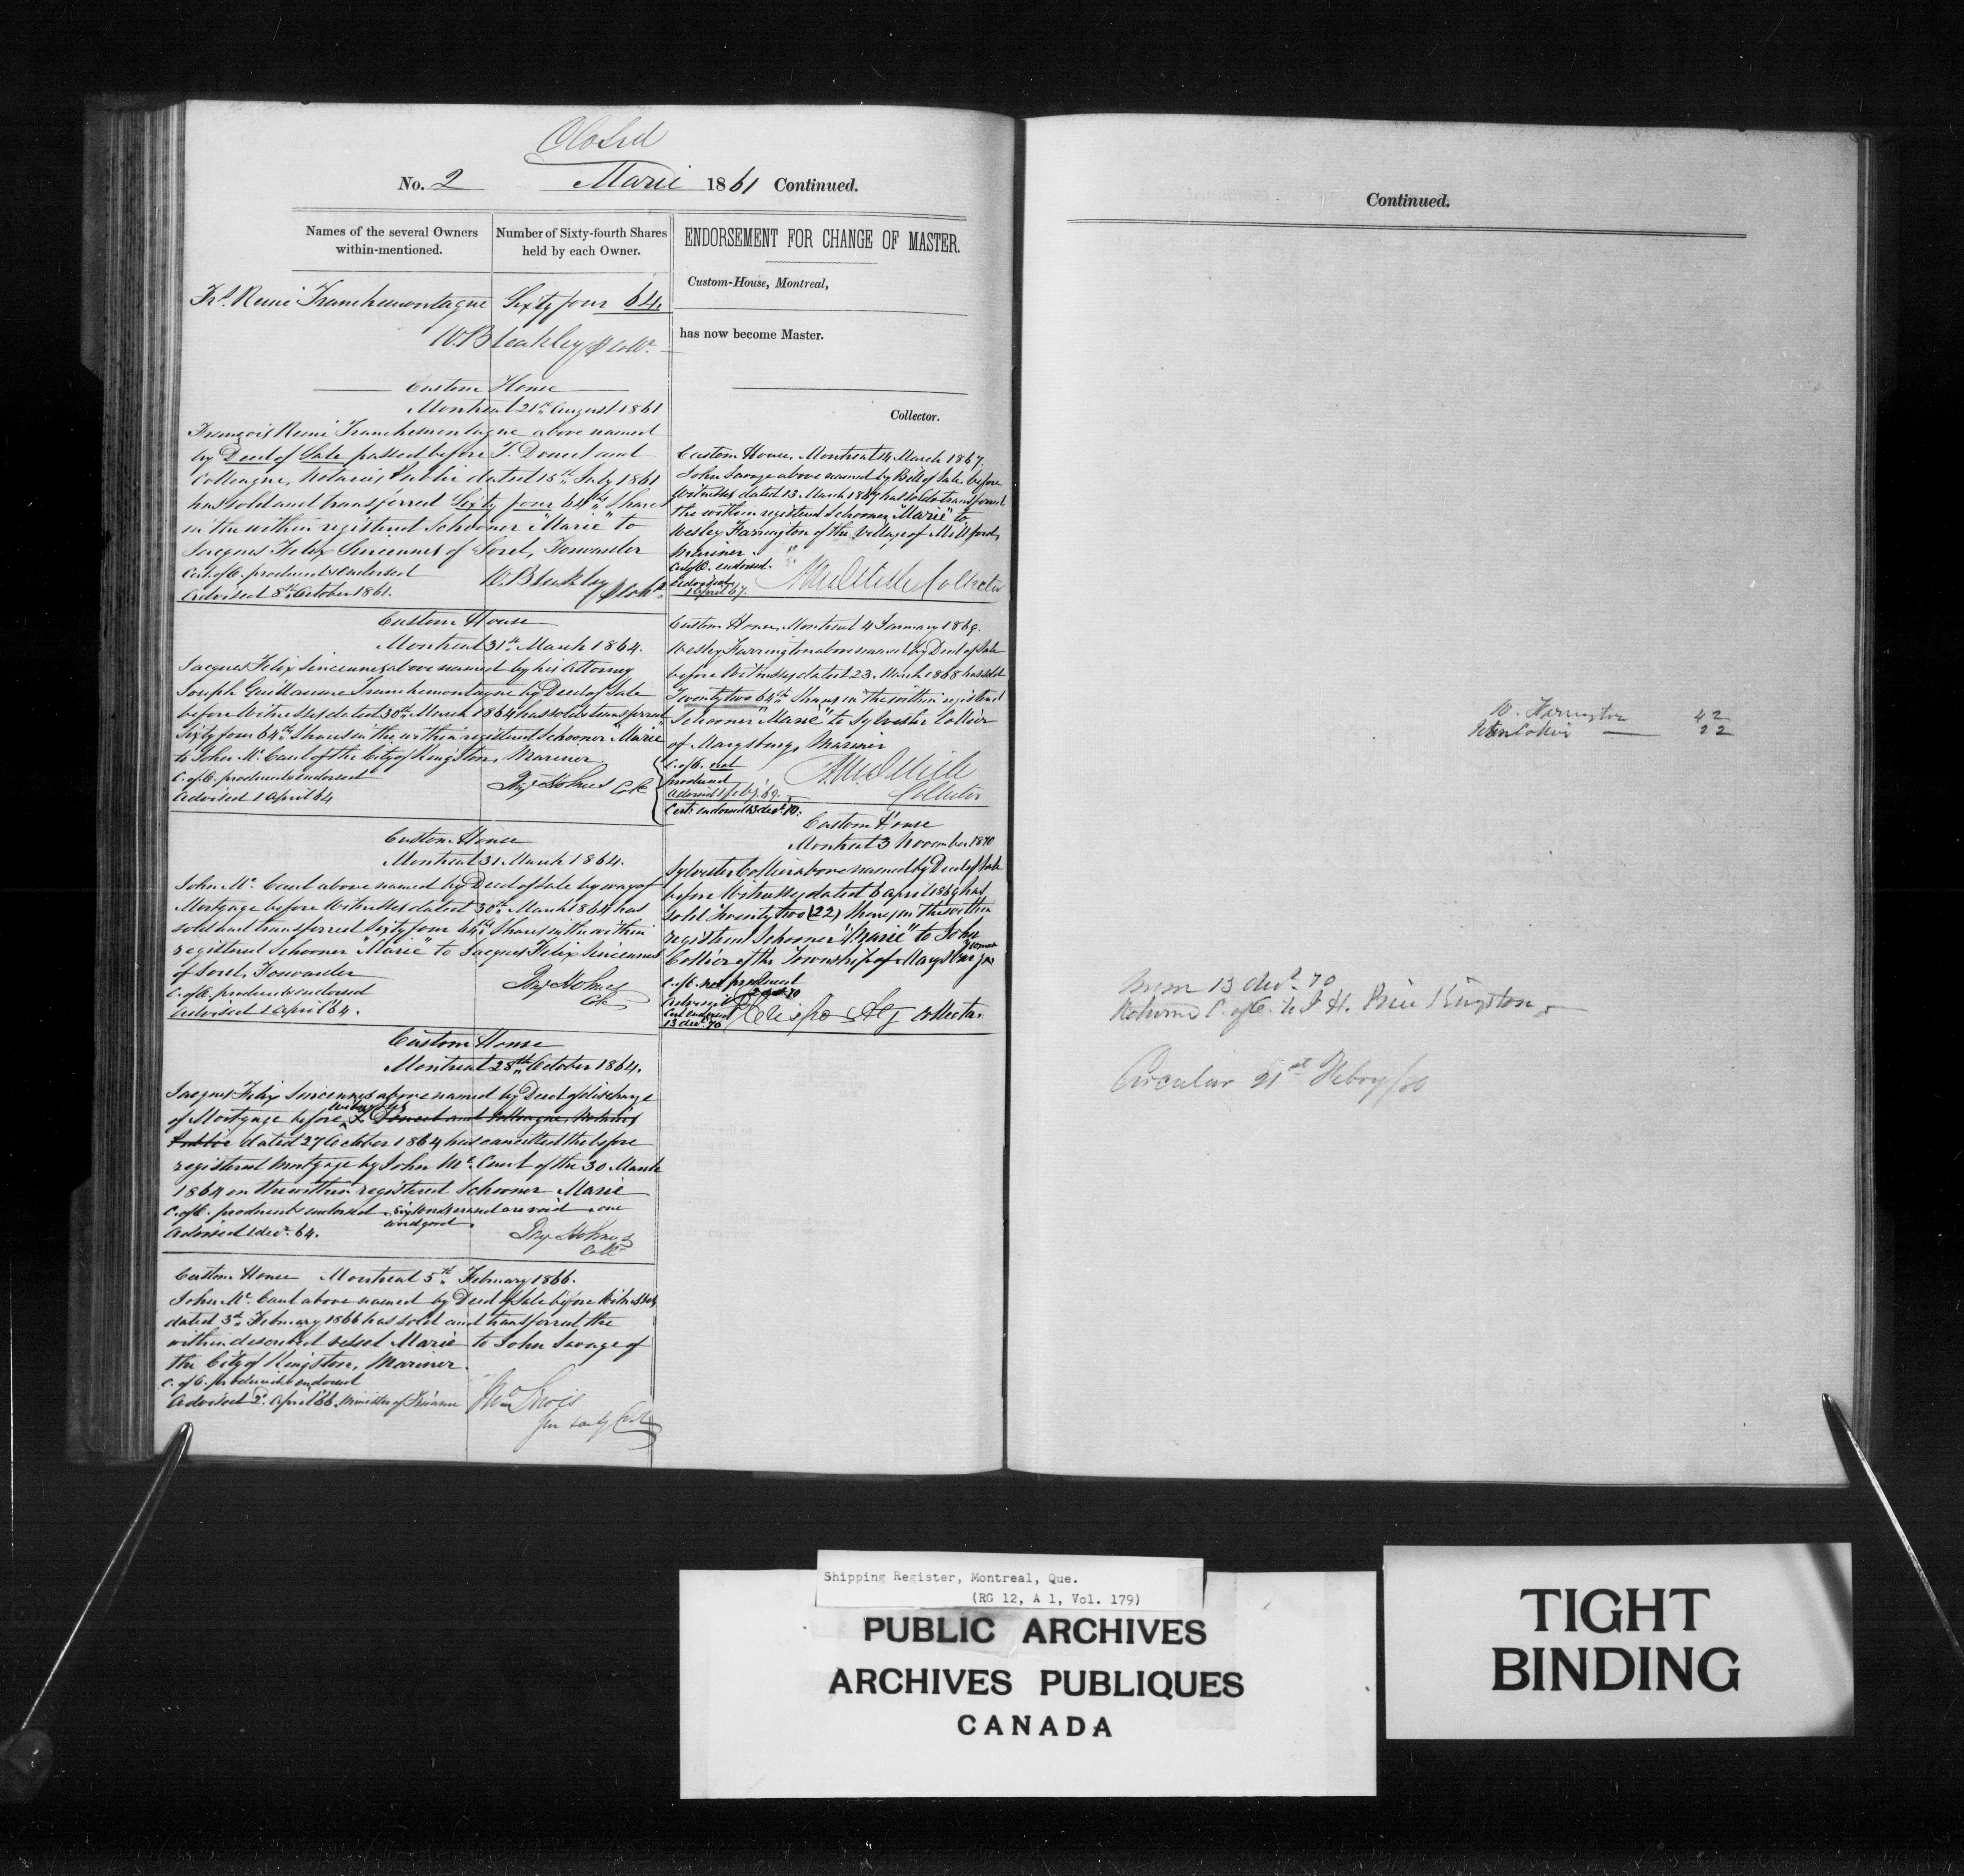 Closed
No. 2 Marie 1861 Continued.
Names of the several Owners within-mentioned.
Number of Sixty-fourth Shares held by each Owner.
Frs. Remi Tranchemontagne Sixty four 64.
W. Bleakley
Custom House
Montreal 21st August 1861
François Remi Tranchemontagne above named
by Deed of Sale passed before T. Doucet and
Colleague, Notaries Public dated 15th July 1861
has sold and transferred Sixty four 64ths Shares
in the within registered Schooner "Marie" to
Jacques Felix Sincennes of Sorel, Forwarder
Cert. of O. produced & endorsed
W. Bleakley
Advised 8th October 1861.
Custom House
Montreal 31st March 1864.
Jacques Felix Sincennes above named by his Attorney
Joseph Guillaume Tranchemontagne by Deed of Sale
before Witnesses dated 30th March 1864 has sold & transferred
Sixty four 64ths Shares in the within registered Schooner "Marie"
to John Mc. Caul of the City of Kingston, Mariner.
C. of O. produced & endorsed
Advised 1 April 64
Custom House
Montreal 31 March 1864.
John Mc. Caul above named by Deed of Sale by way of
Mortgage before Witnesses dated 30th March 1864 has
sold and transferred Sixty four 64ths Shares in the within
registered Schooner "Marie" to Jacques Felix Sincennes
of Sorel, Forwarder
C. of O. produced & endorsed
Advised 1 April 64.
Custom House
Montreal 28th October 1864.
Jacques Felix Sincennes above named by Deed of discharge
of Mortgage before Witnesses T. Doucet and Colleague, Notaries
Public dated 27 October 1864 has cancelled the before
registered Mortgage by John Mc. Caul of the 30 March
1864 on the within registered Schooner Marie
C. of O. produced & endorsed. Six words erased are void, one
word good.
Advised 1 Decr. 64.
Custom House Montreal 5th February 1866.
John Mc. Caul above named by Deed of Sale before Witnesses
dated 3rd February 1866 has sold and transferred the
within described vessel Marie to John Savage of
the City of Kingston, Mariner.
C. of O. produced & endorsed
Advised 2d. April 66 Minister of Finance
ENDORSEMENT FOR CHANGE OF MASTER.
Custom-House, Montreal,
has now become Master.
Collector.
Custom House, Montreal 14 March 1867.
John Savage above named by Bill of Sale before
Witnesses dated 13 March 1867 has sold & transferred
the within registered Schooner "Marie" to
Wesley Farrington of the Village of Millford,
Mariner.
C. of O. endorsed.
Advised
1 April 67.
Collector
Custom House, Montreal 4 January 1869.
Wesley Farrington above named by Deed of Sale
before Witnesses dated 23 March 1868 has sold
Twenty two 64ths Shares in the within registered
Schooner "Marie" to Sylvester Collier
of Marysburg, Mariner
C. of O. not
produced
Advised 1 Feby. 69.
Collector
Cert. endorsed 13 decr. 70.
Custom House
Montreal 3 November 1870
Sylvester Collier above named by Deed of Sale
before Witnesses dated 6 April 1869 has
sold Twenty two (22) Shares in the within
registered Schooner "Marie" to John
Collier of the Township of Marysburg
C. of O. not produced
Advised
Cert endorsed
13 decr. 70
Collector
Continued.
W. Farrington 42
John Collier 22
13 decr. 70
Returned C. of O. to J. H. Price Kingston
Circular 21st Febry/80
Shipping Register, Montreal, Que.
(RG 12, A 1, Vol. 179)
PUBLIC ARCHIVES
ARCHIVES PUBLIQUES
CANADA
TIGHT
BINDING